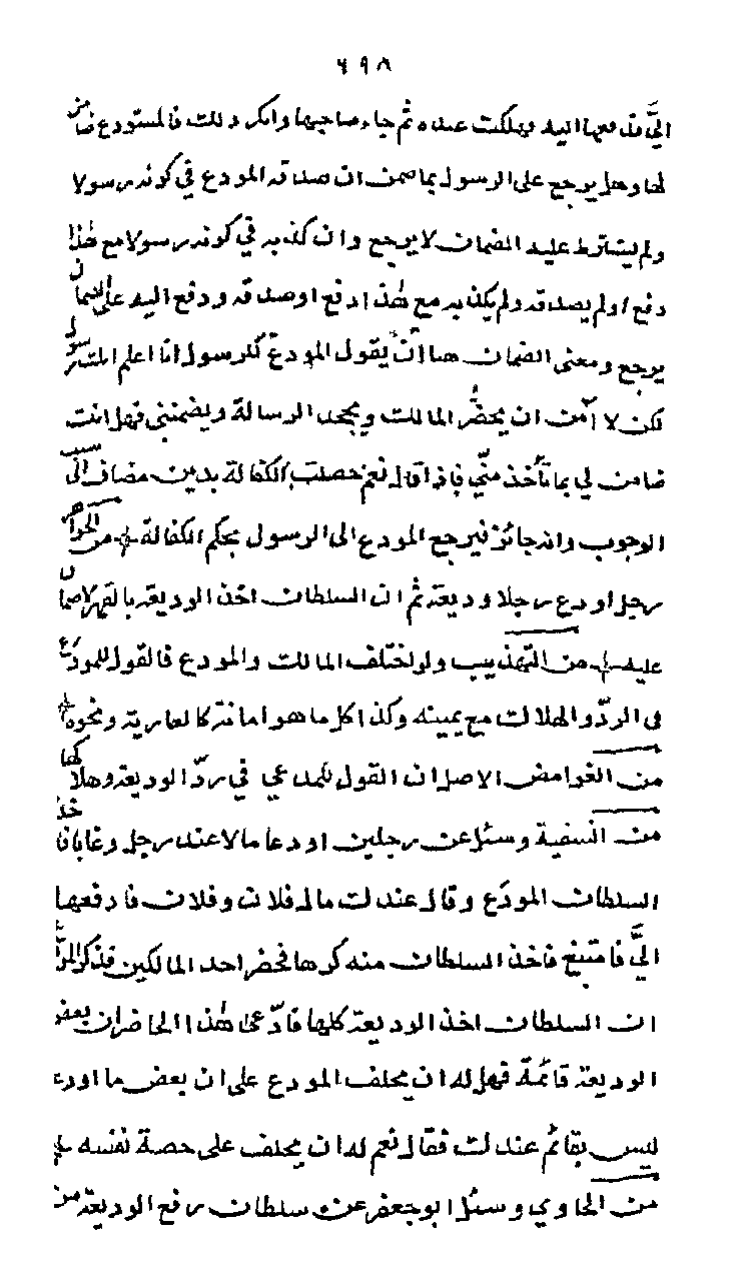 ٦٩٨
اليَّ فدفعها اليه فهلكت عنده ثم جاء صاحبها وانكر ذلك فالمستودع ضامن
لها وهل يرجع على الرسول بما ضمن ان صدقه المودع في كونه رسولا
ولم يشترط عليه الضمان لا يرجع وان كذبه في كونه رسولا مع هذا
دفع او لم يصدقه ولم يكذبه مع هذا دفع او صدقه ودفع اليه على الضمان
يرجع ومعنى الضمان هنا ان يقول المودع للرسول انا اعلم انك رسول
لكن لا آمن ان يحضر المالك ويجحد الرسالة ويضمنني فهل انت
ضامن لي بما تأخذ منّي فاذا قال نعم حصلت الكفالة بدين مضاف الى سبب
الوجوب وانه جائز فيرجع المودع الى الرسول بحكم الكفالة من الجواهر
رجل اودع رجلا وديعة ثم ان السلطان اخذ الوديعة بالقهر لا ضمان
عليه من التهذيب ولو اختلف المالك والمودع فالقول للمودع
في الردّ والهلاك مع يمينه وكذا كل ما هو امانة كالعارية ونحوه
من الغوامض الاصل ان القول للمدعي في ردّ الوديعة وهلاكها
من النسفية وسئل عن رجلين اودعا مالا عند رجل وغابا فاخذ
السلطان المودَع وقال عندك مال فلان وفلان فادفعها
اليَّ فامتنع فاخذ السلطان منه كرها فحضر احد المالكين فذكر المودع
ان السلطان اخذ الوديعة كلها فادّعى هذا الحاضر ان بعض
الوديعة قائمة فهل له ان يحلف المودع على ان بعض ما اودع
ليس بقائم عندك فقال نعم له ان يحلف على حصة نفسه
من الحاوي وسئل ابو جعفر عن سلطان رفع الوديعة من